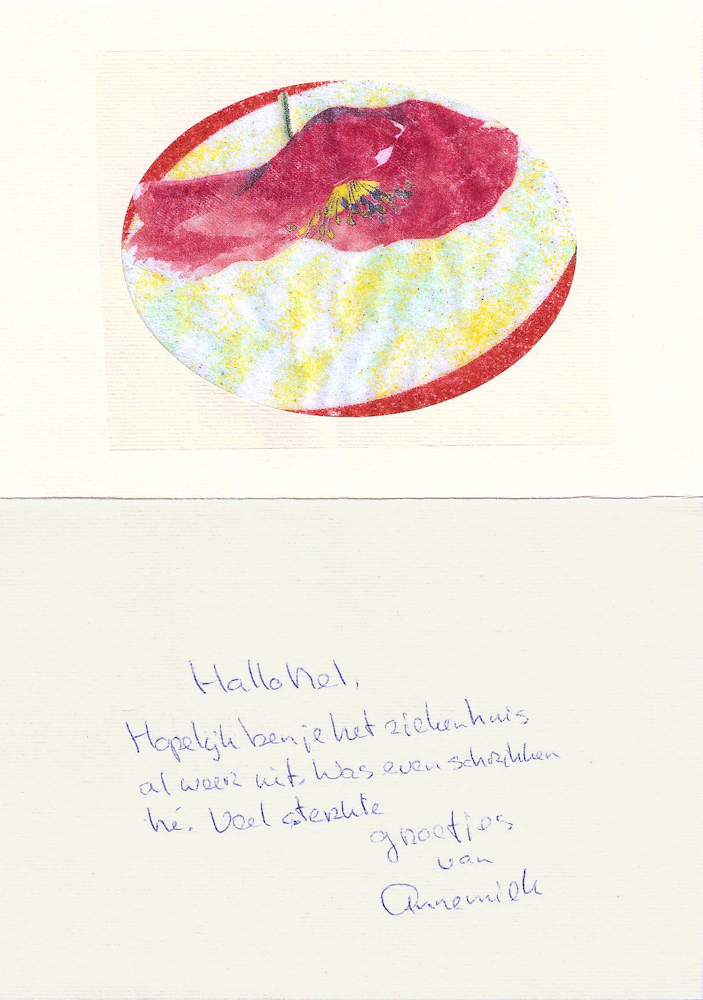 Hallo Nel,
Hopelijk ben je het ziekenhuis
al weer uit. Was even schrikken
hé. Veel sterkte
groetjes
van
Annemiek